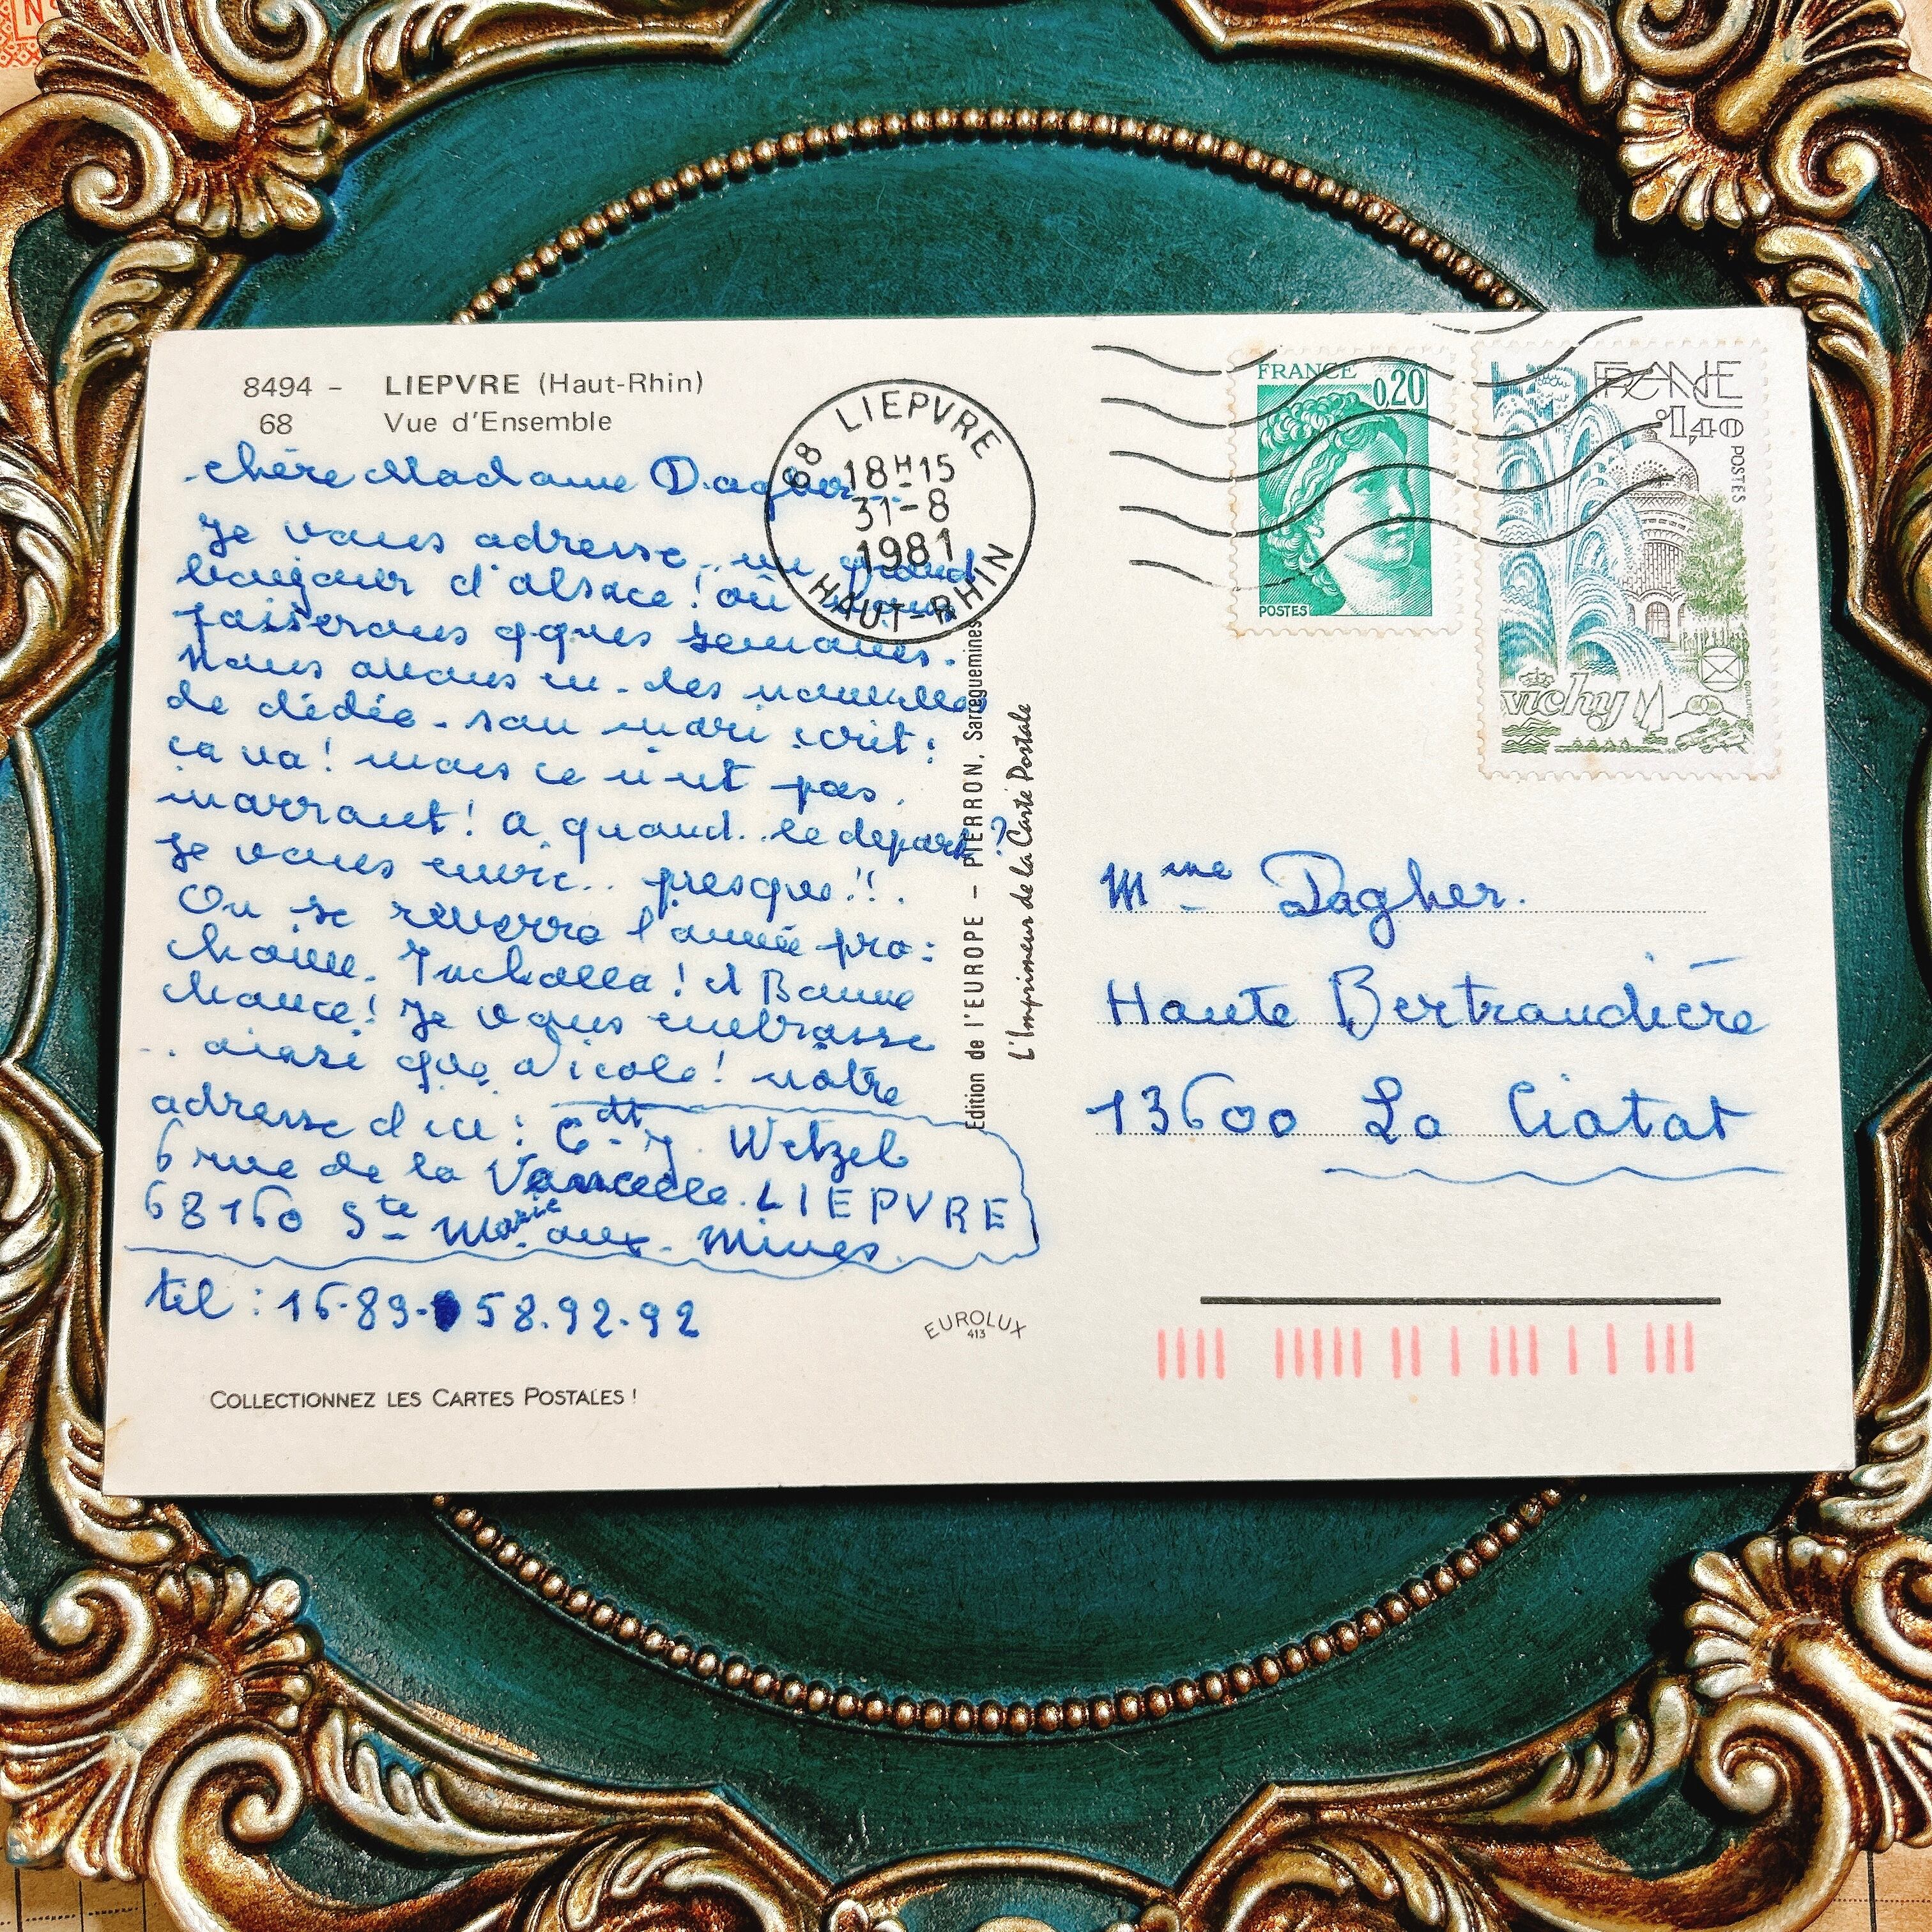 8494 - LIEPVRE (Haut-Rhin)
68 Vue d'Ensemble
chère Madame Dagher
Je vous adresse.. un grand
bonjour d'alsace! où nous
passerons qques semaines.
Nous avons eu - des nouvelles
de dédée - son mari écrit :
ça va! mais ce n'est pas
marrant! A quand.. le depart?
Je vous envie.. presque!!
On se reverra l'année pro:
chaine. Inchalla! et Bonne
chance! Je vous embrasse
.. ainsi que Nicole! notre
adresse d'ici : Cdt J. Wetzel
6 rue de la Vancelle. LIEPVRE
68160 Ste Marie aux - Mines.
tél : 16-89-58.92-92
COLLECTIONNEZ LES CARTES POSTALES !
68 LIEPVRE
18H15
31-8
1981
HAUT-RHIN
Edition de l'EUROPE – PIERRON, Sarreguemines
L'Imprimeur de la Carte Postale
EUROLUX
413
FRANCE
0,20
POSTES
FRANCE
1,40
POSTES
vichy
Mme Dagher.
Haute Bertraudière
13600 La Ciotat